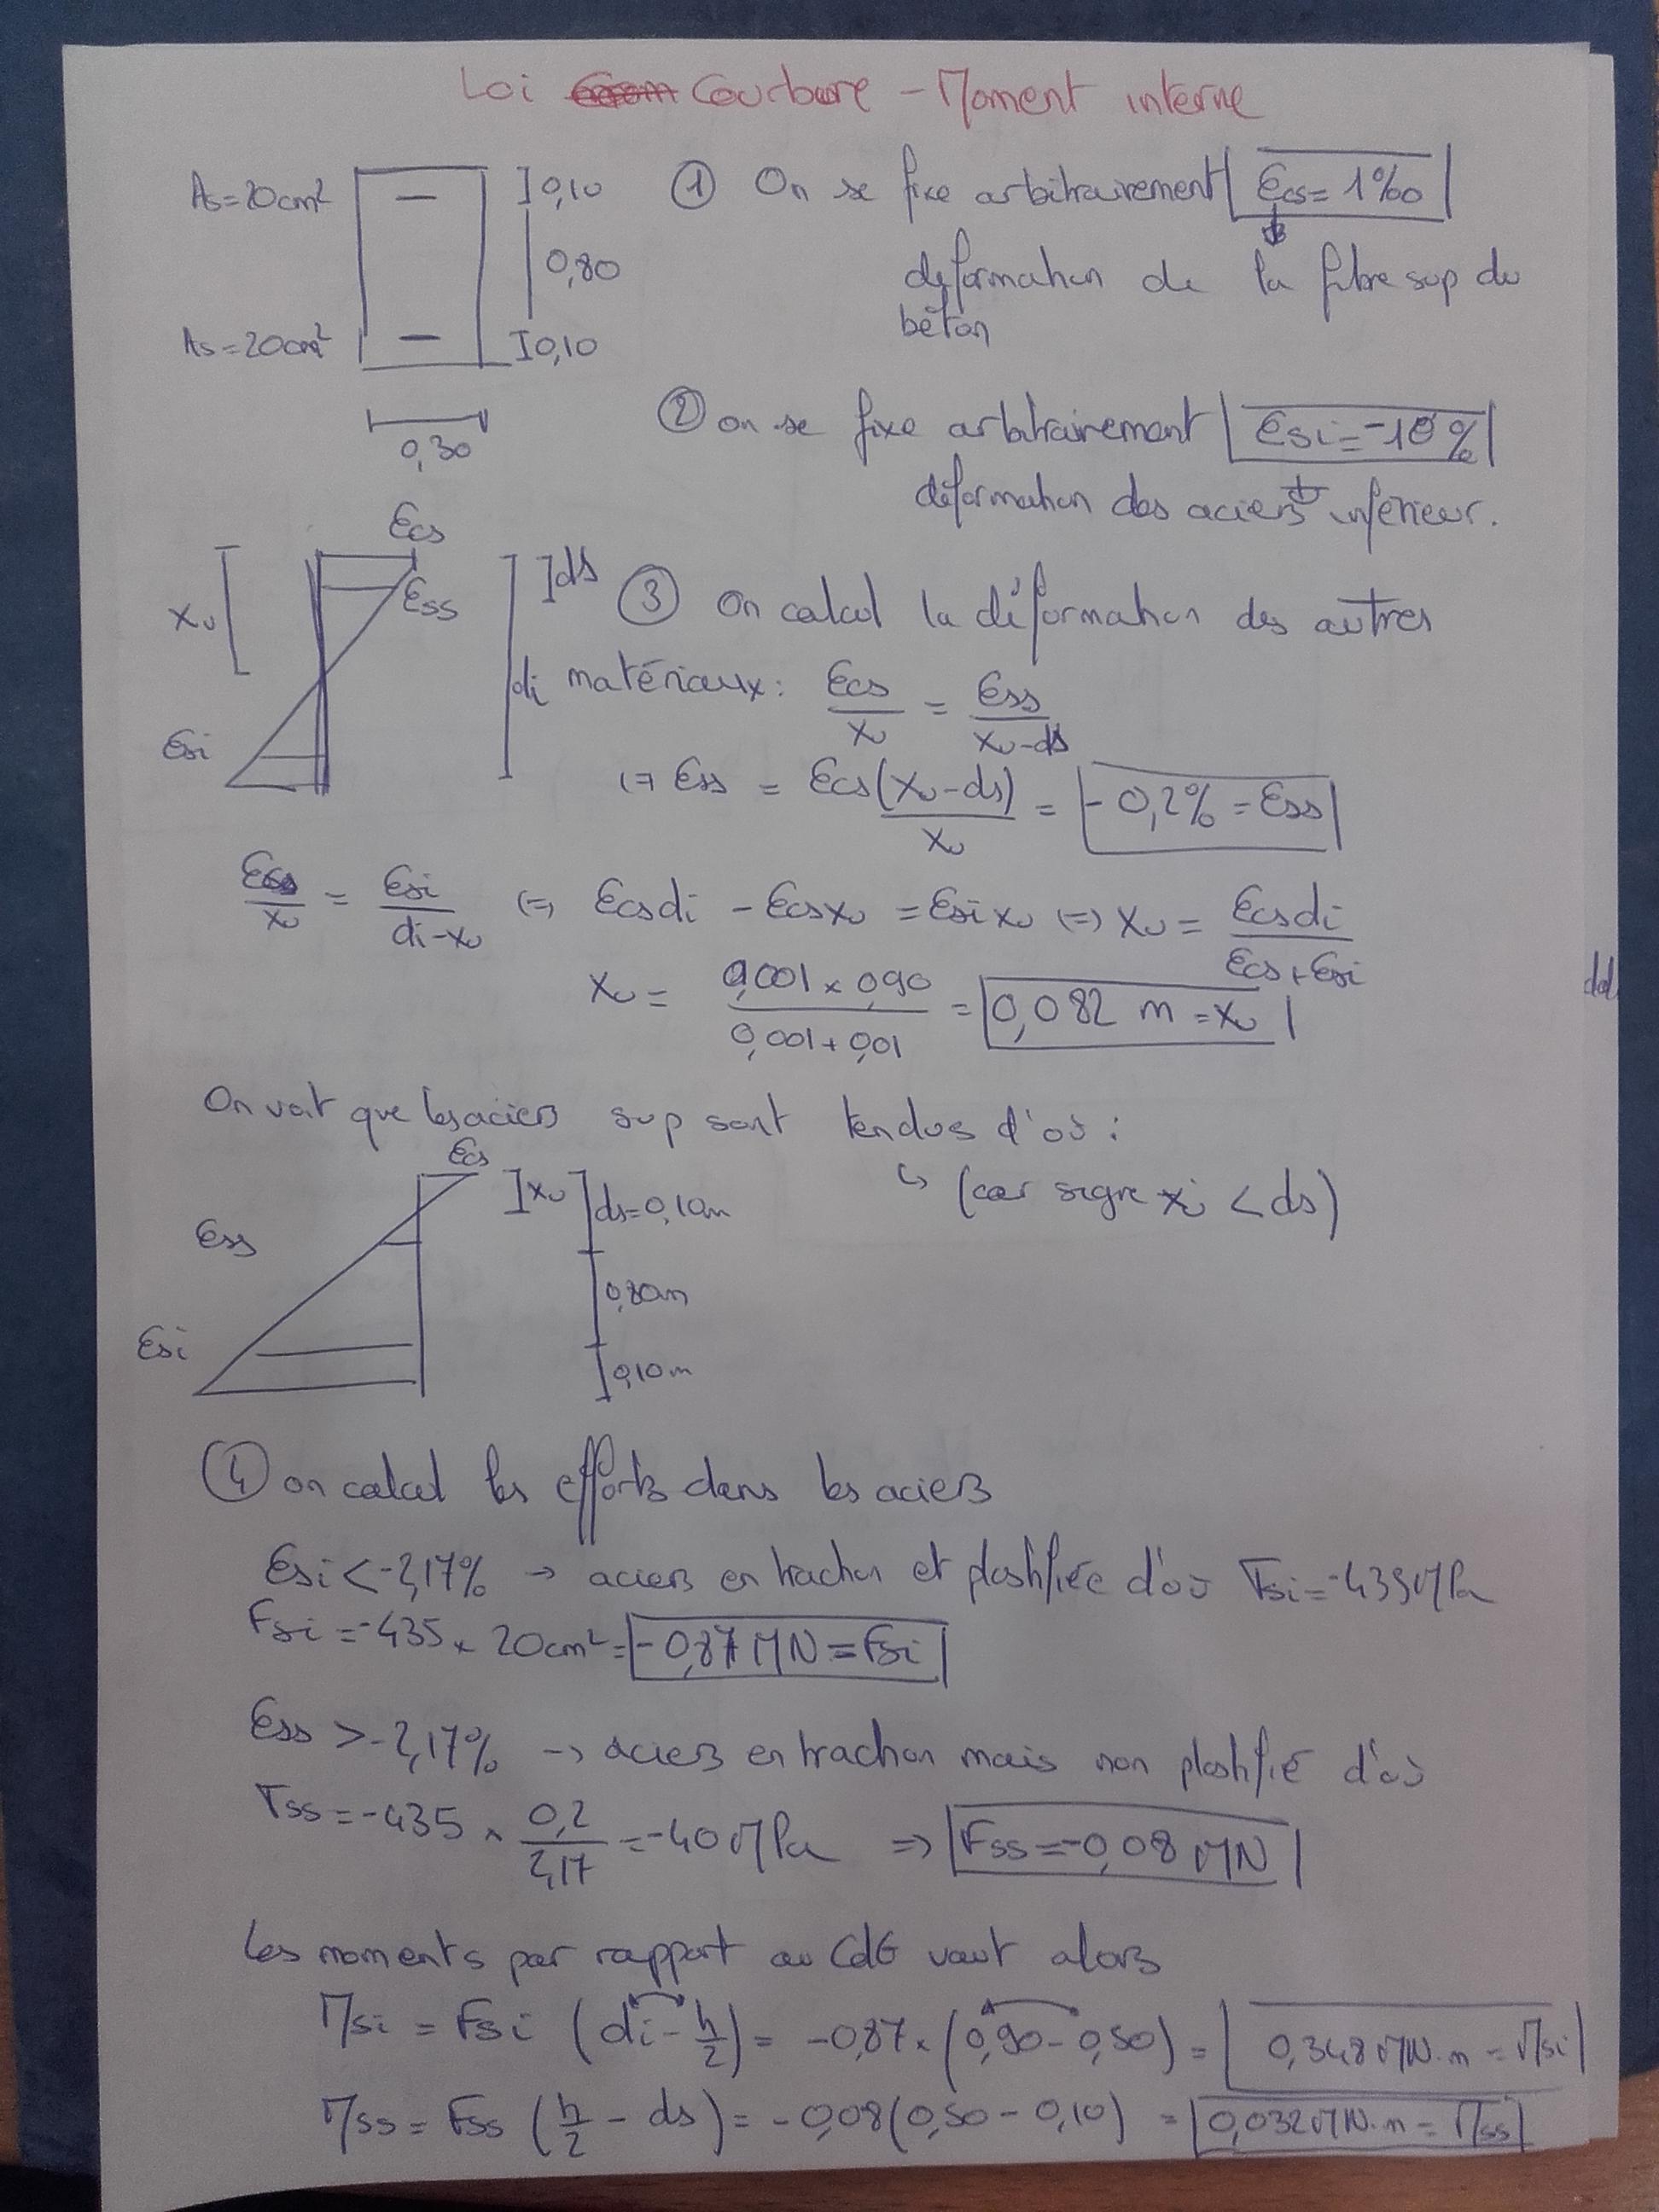 Loi Courbure - Moment interne
As=20cm² 0,10 ① On se fixe arbitrairement Ɛcs= 1‰
0,80 déformation de la fibre sup du
béton
As=20cm² 0,10
② on se fixe arbitrairement Ɛsi=-10‰
0,30
déformation des aciers inférieur.
Ɛcs
xu Ɛss ds ③ On calcul la déformation des autres
di matériaux: Ɛcs/xu = Ɛss/(xu-ds)
Ɛsi
(=) Ɛss = Ɛcs(xu-ds)/xu = -0,2‰ = Ɛss
Ɛcs/xu = Ɛsi/(di-xu) (=) Ɛcsdi - Ɛcsxu = Ɛsixu (=) xu = Ɛcsdi/(Ɛcs+Ɛsi)
xu = (0,001 x 0,90)/(0,001+0,01) = 0,082 m = xu
On voit que les aciers sup sont tendus d'où :
Ɛcs
xu ds=0,10m ↳ (car signe xu < ds)
Ɛss
0,80m
Ɛsi
0,10m
④ on calcul les efforts dans les aciers
Ɛsi < -2,17‰ → aciers en traction et plastifiée d'où σsi=-435MPa
Fsi = -435 x 20cm² = -0,87MN = Fsi
Ɛss > -2,17‰ → aciers en traction mais non plastifié d'où
σss = -435 x 0,2/2,17 = -40MPa => Fss = -0,08MN
Les moments par rapport au CdG vaut alors
Msi = Fsi (di - h/2) = -0,87 x (0,90 - 0,50) = 0,348MN.m = Msi
Mss = Fss (h/2 - ds) = -0,08(0,50 - 0,10) = 0,032MN.m = Mss